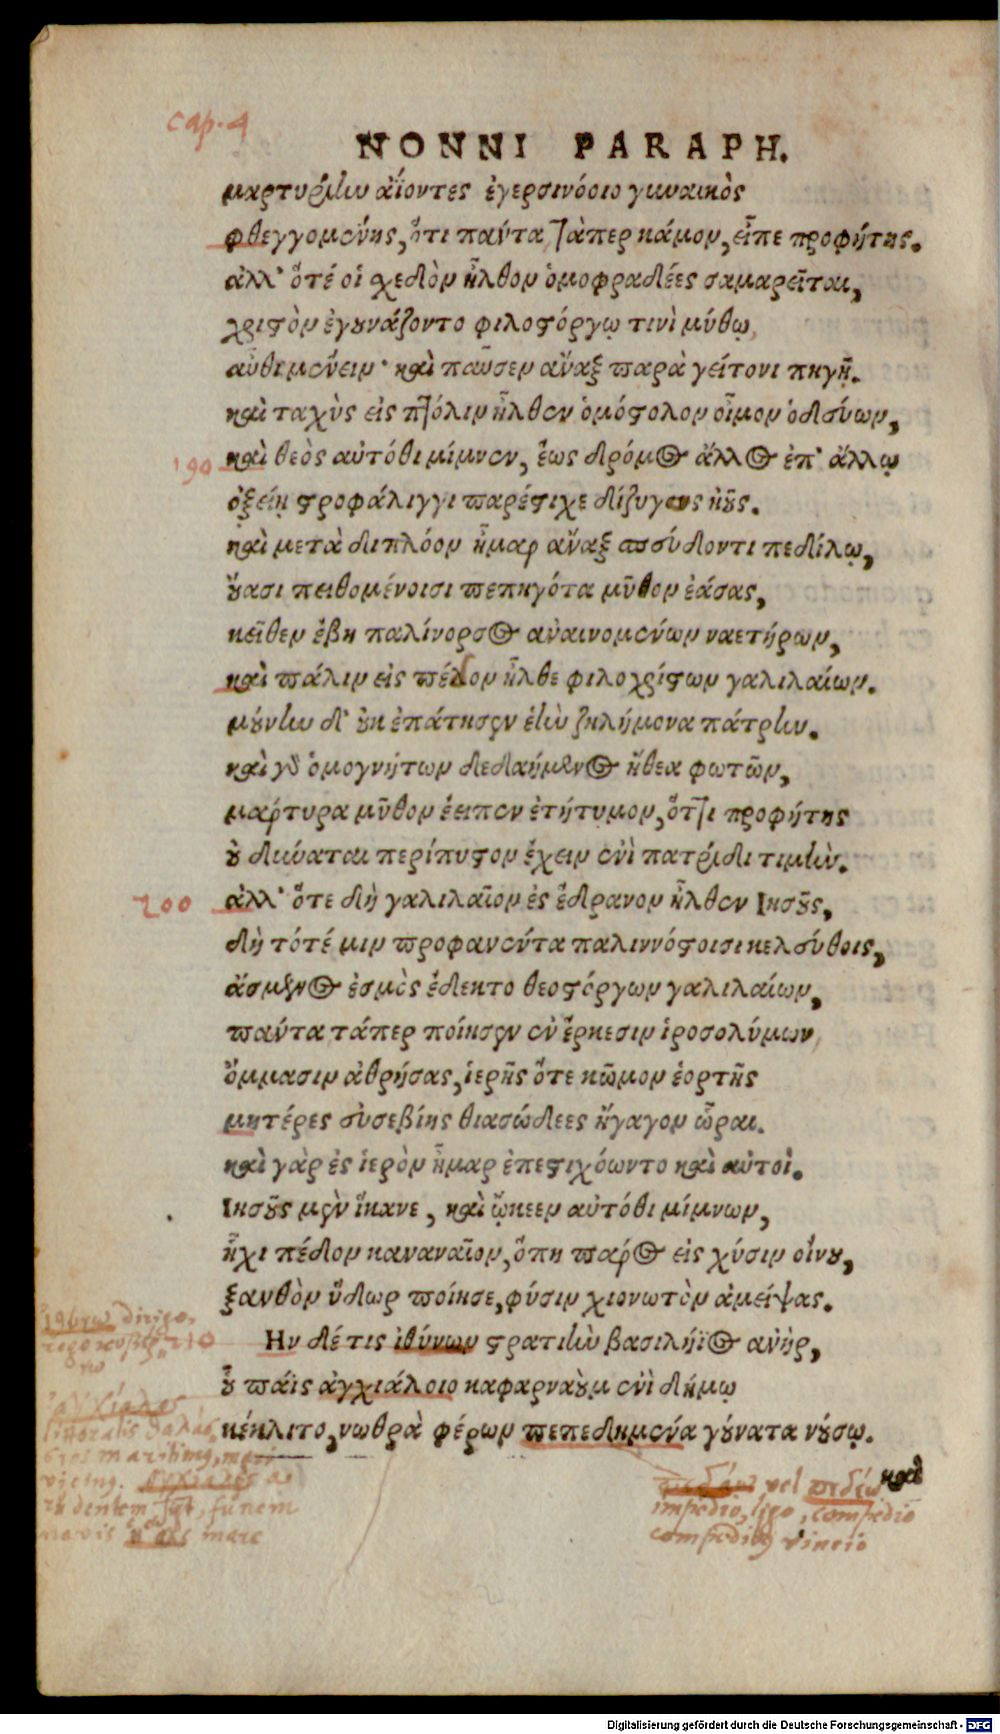 cap. 4
NONNI PARAPH.
μαρτυρίην ἀΐοντες ἐγερσινόοιο γυναικὸς
φθεγγομένης, ὅτι πάντα τάπερ κάμον, εἶπε προφήτης.
ἀλλ' ὅτέ οἱ σχεδὸν ἦλθον ὁμοφραδέες σαμαρεῖται,
χριστὸν ἐγουνάζοντο φιλοστόργῳ τινὶ μύθῳ,
αὖθι μένειν· καὶ παῦσεν ἄναξ παρὰ γείτονι πηγῇ.
καὶ ταχὺς εἰς πτόλιν ἦλθεν ὁμόστολον οἶμον ὁδεύων,
190 καὶ θεὸς αὐτόθι μίμνεν, ἕως δρόμος ἄλλος ἐπ' ἄλλῳ
ὀξείῃ στροφάλιγγι παρέστιχε δίζυγος ἠοῦς.
καὶ μετὰ διπλόον ἦμαρ ἄναξ σπεύδοντι πεδίλῳ,
οὔασι πειθομένοισι πεπηγότα μῦθον ἐάσας,
κεῖθεν ἔβη παλίνορσος ἀναινομένων ναετήρων,
καὶ πάλιν εἰς πέδον ἦλθε φιλοχρίστων γαλιλαίων.
μούνην δ' οὐκ ἐπάτησεν ἑὴν ζηλήμονα πάτρην.
καὶ γὰρ ὁμογνήτων δεδαημένος ἤθεα φωτῶν,
μάρτυρα μῦθον ἔειπεν ἐτήτυμον, ὅττι προφήτης
οὐ δύναται περίπυστον ἔχειν ἐνὶ πατρίδι τιμήν.
200 ἀλλ' ὅτε δὴ γαλιλαῖον ἐς ἕδρανον ἦλθεν Ιησοῦς,
δὴ τότέ μιν προφανέντα παλιννόστοισι κελεύθοις,
ἄσμενος ἑσμὸς ἔδεκτο θεοστόργων γαλιλαίων,
πάντα τάπερ ποίησεν ἐν ἕρκεσιν ἱροσολύμων
ὄμμασιν ἀθρήσας, ἱερῆς ὅτε κῶμον ἑορτῆς
μητέρες εὐσεβίης θιασώδεες ἤγαγον ὧραι.
καὶ γὰρ ἐς ἱερὸν ἦμαρ ἐπεστιχόωντο καὶ αὐτοὶ.
Ιησοῦς μὲν ἵκανε, καὶ ᾤκεεν αὐτόθι μίμνων,
ἧχι πέδον καναναῖον, ὅπη πάρος εἰς χύσιν οἴνου,
ξανθὸν ὕδωρ ποίησε, φύσιν χιονωτὸν ἀμείψας.
210 Ην δέ τις ἰθύνων στρατιὴν βασιλήϊος ἀνὴρ,
οὗ πάϊς ἀγχιάλοιο καφαρναοὺμ ἐνὶ δήμῳ
κέκλιτο, νωθρὰ φέρων πεπεδημένα γούνατα νούσῳ.
καὶ
ἰθύνω dirigo,
littoralis
maritimus, mari
vicinus.
dentem
navis mare
πεδάω vel πεδέω
impedio, ligo, compedio
compedibus vincio
Digitalisierung gefördert durch die Deutsche Forschungsgemeinschaft - DFG